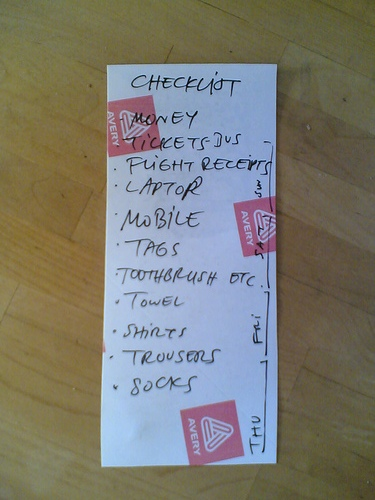 CHECKLIST
MONEY
TICKETS-BUS
· FLIGHT RECEIPTS
· LAPTOP
· MOBILE
· TAGS
· TOOTHBRUSH ETC.
· TOWEL
· SHIRTS
· TROUSERS
· SOCKS
THU
FRI
SAT
SUN
AVERY
AVERY
AVERY